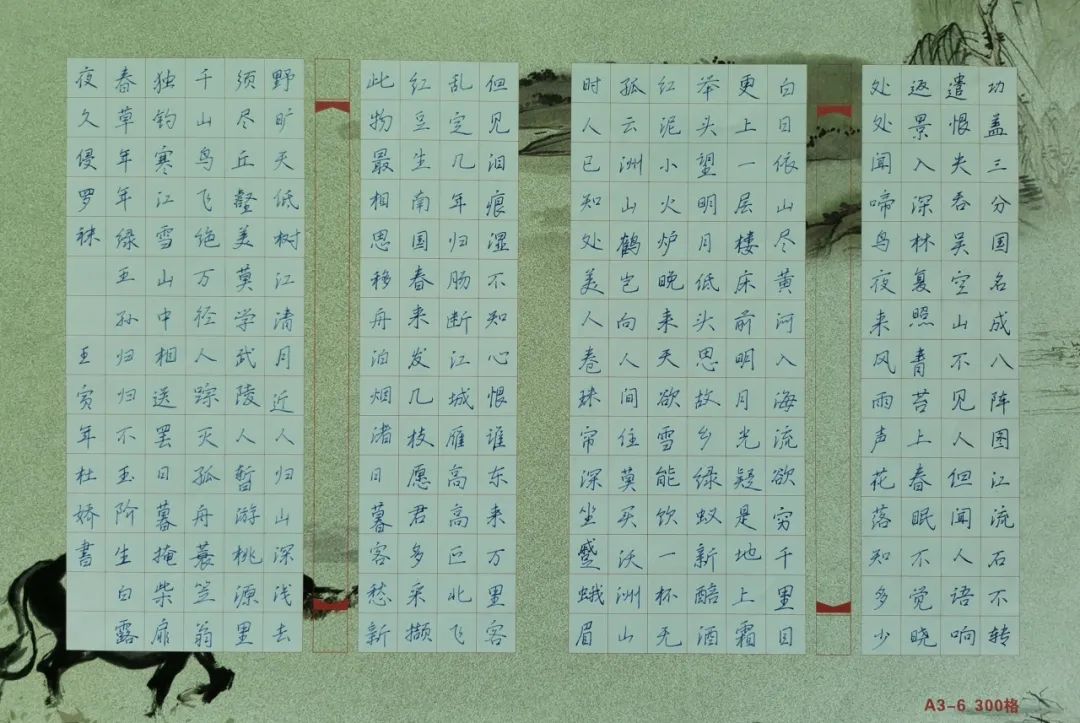 功盖三分国名成八阵图江流石不转
遣恨失吞吴空山不见人但闻人语响
返景入深林复照青苔上春眠不觉晓
处处闻啼鸟夜来风雨声花落知多少
白日依山尽黄河入海流欲穷千里目
更上一层楼床前明月光疑是地上霜
举头望明月低头思故乡绿蚁新醅酒
红泥小火炉晚来天欲雪能饮一杯无
孤云洲山鹤岂向人间住莫买沃洲山
时人已知处美人卷珠帘深坐蹙蛾眉
但见泪痕湿不知心恨谁东来万里客
乱定几年归肠断江城雁高高正北飞
红豆生南国春来发几枝愿君多采撷
此物最相思移舟泊烟渚日暮客愁新
野旷天低树江清月近人归山深浅去
须尽丘壑美莫学武陵人暫游桃源里
千山鸟飞绝万径人踪灭孤舟蓑笠翁
独钓寒江雪山中相送罢日暮掩柴扉
春草年年绿王孙归归不玉阶生白露
夜久侵罗袜 壬寅年杜娇書
A3-6 300格